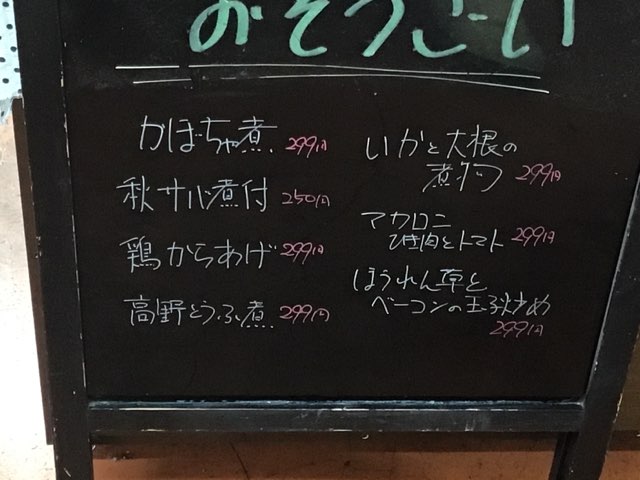 おそうざい
かぼちゃ煮 299円
秋サバ煮付 250円
鶏からあげ 299円
高野とうふ煮 299円
いかと大根の
煮物 299円
マカロニ
ひき肉とトマト 299円
ほうれん草と
ベーコンの玉子炒め
299円